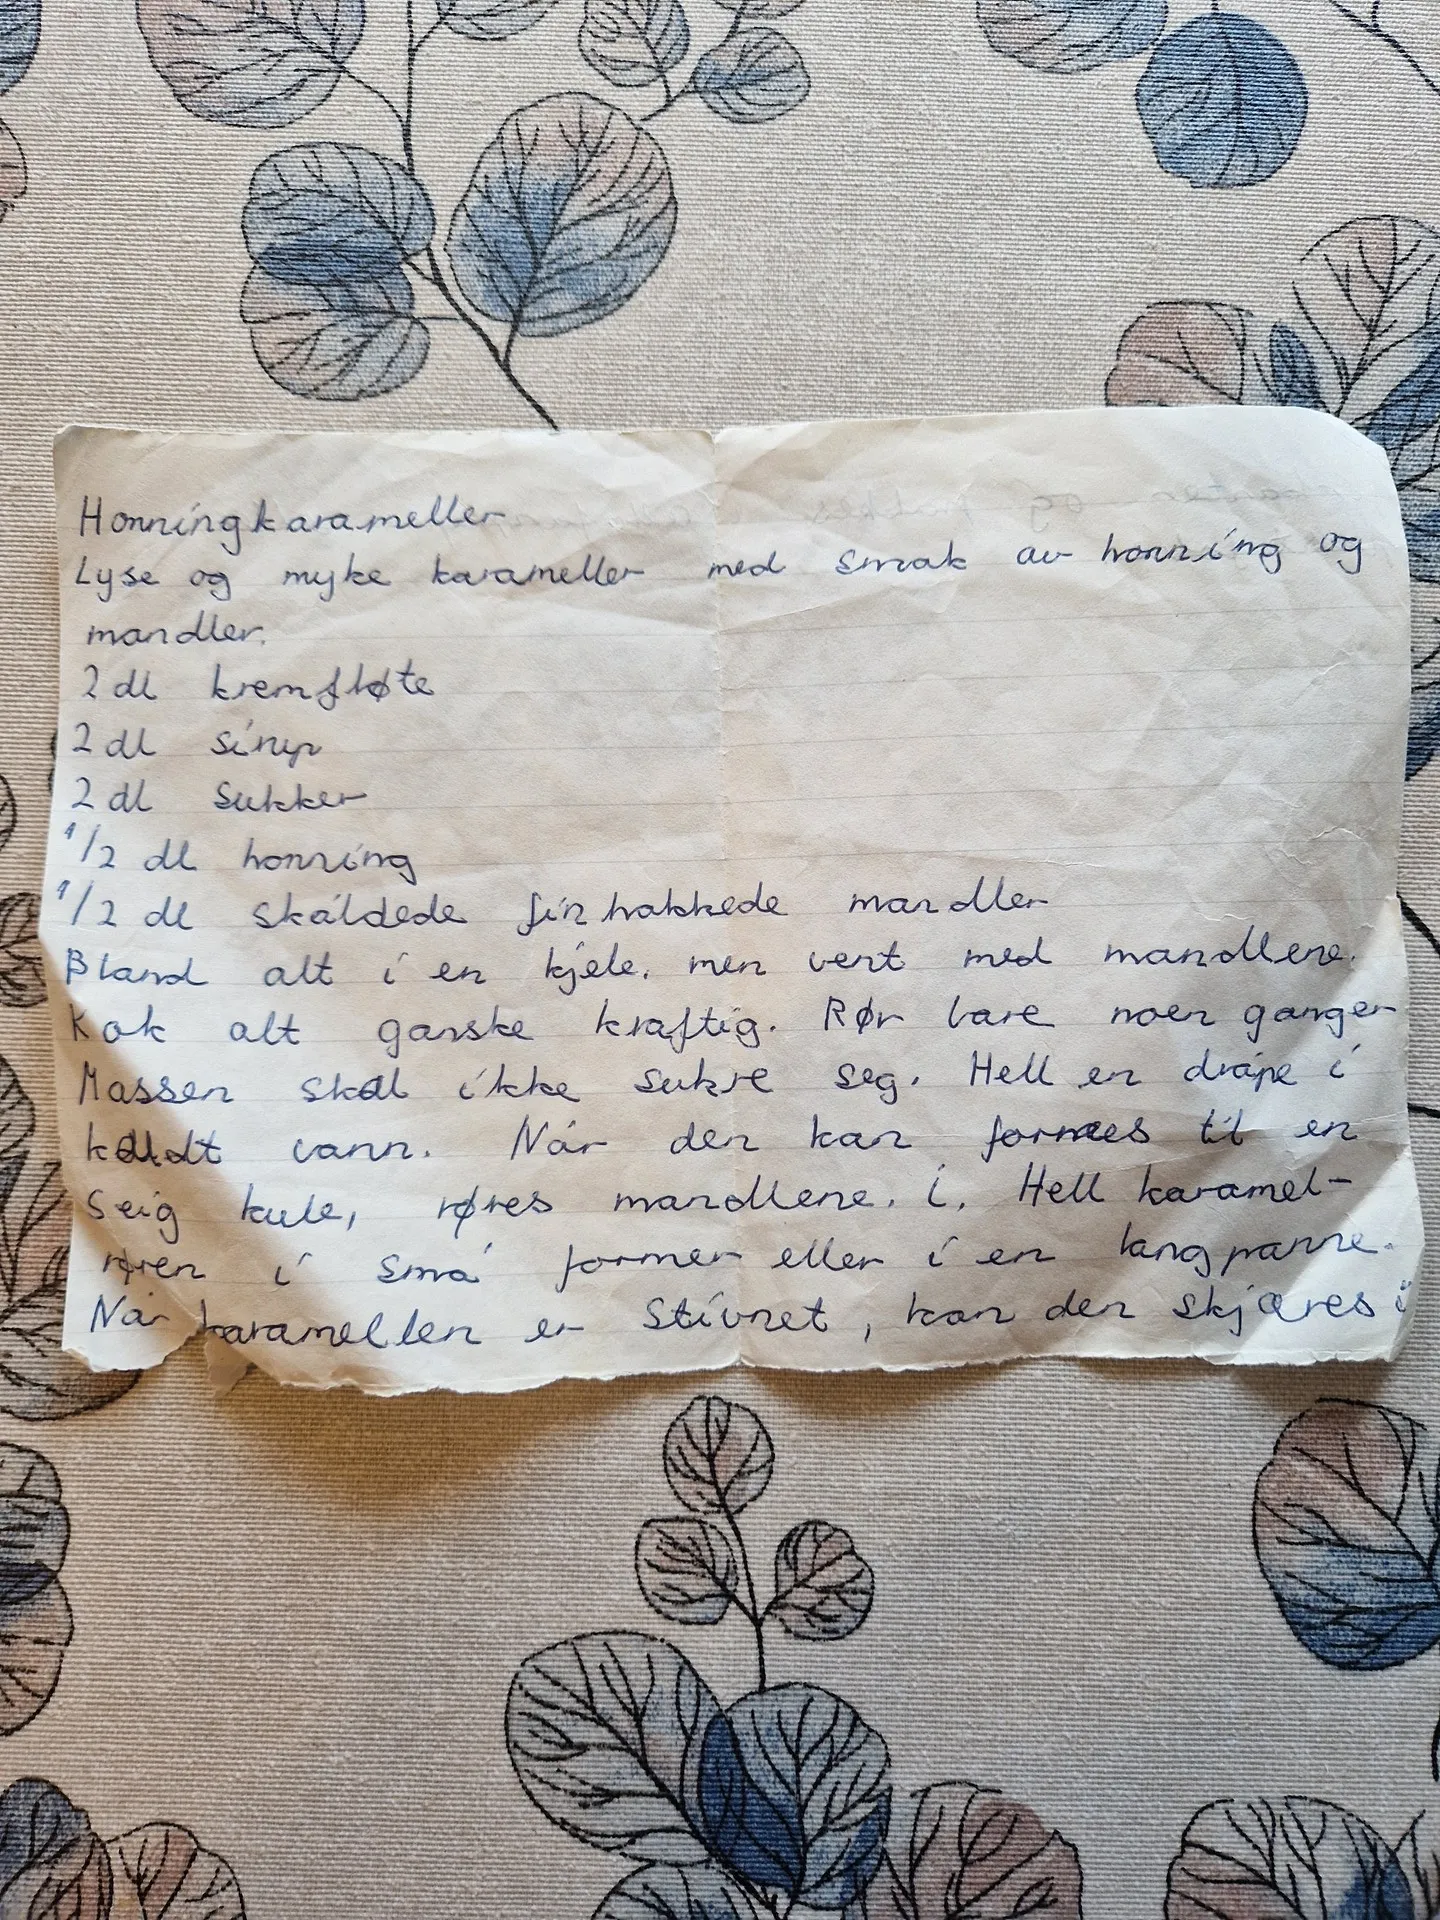 Honningkarameller
Lyse og myke karameller med smak av honning og
mandler.
2 dl kremfløte
2 dl sirup
2 dl sukker
1/2 dl honning
1/2 dl skåldede finhakkede mandler
Bland alt i en kjele. men vent med mandlene.
Kok alt ganske kraftig. Rør bare noen ganger
Massen skal ikke sukre seg. Hell en dråpe i
kaldt vann. Når den kan formes til en
seig kule, røres mandlene. i. Hell karamel-
røren i små former eller i en langpanne.
Når karamellen er stivnet, kan den skjæres i